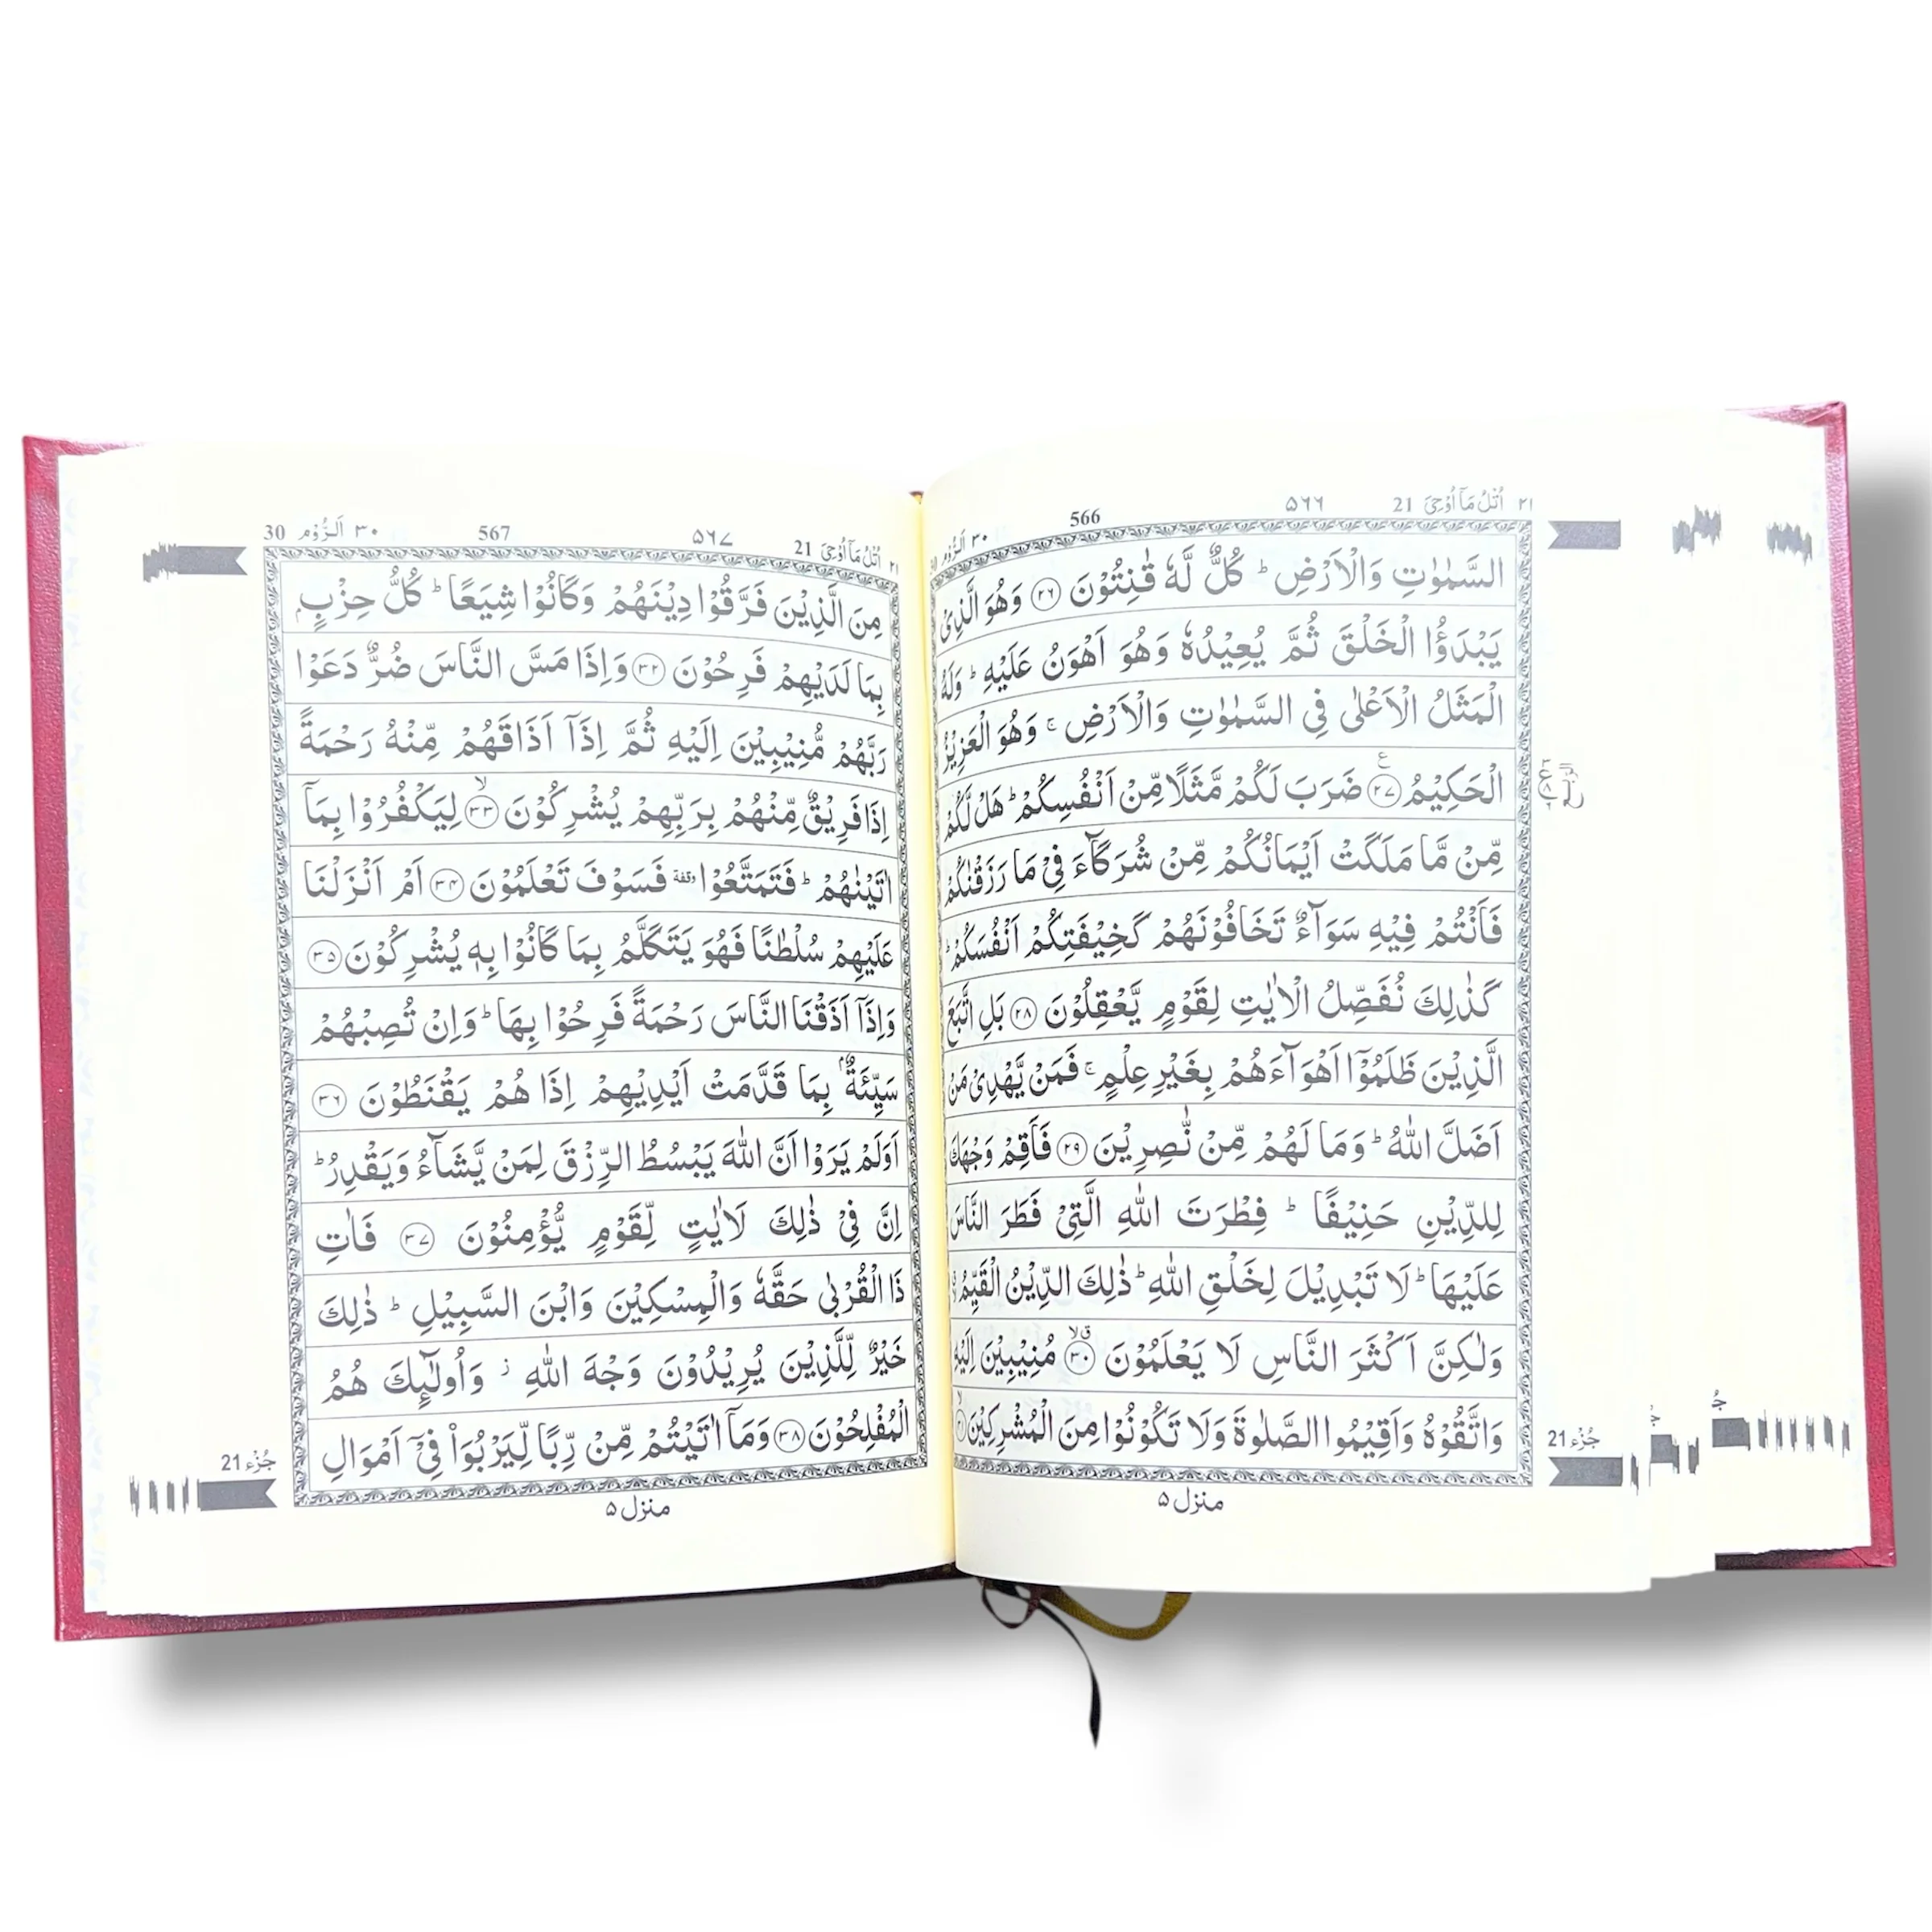 ٢١ اُتْلُ مَآ اُوْحِیَ 21 ۵۶۶ 566 اَلرُّوْم ٣٠
السَّمٰوٰتِ وَالْاَرْضِ ؕ كُلٌّ لَّهٗ قٰنِتُوْنَ ﴿۲۶﴾ وَهُوَ الَّذِیْ
یَبْدَؤُا الْخَلْقَ ثُمَّ یُعِیْدُهٗ وَهُوَ اَهْوَنُ عَلَیْهِ ؕ وَلَهُ
الْمَثَلُ الْاَعْلٰی فِی السَّمٰوٰتِ وَالْاَرْضِ ۚ وَهُوَ الْعَزِیْزُ
الْحَكِیْمُ ﴿۲۷﴾ ضَرَبَ لَكُمْ مَّثَلًا مِّنْ اَنْفُسِكُمْ ؕ هَلْ لَّكُمْ
مِّنْ مَّا مَلَكَتْ اَیْمَانُكُمْ مِّنْ شُرَكَآءَ فِیْ مَا رَزَقْنٰكُمْ
فَاَنْتُمْ فِیْهِ سَوَآءٌ تَخَافُوْنَهُمْ كَخِیْفَتِكُمْ اَنْفُسَكُمْ ؕ
كَذٰلِكَ نُفَصِّلُ الْاٰیٰتِ لِقَوْمٍ یَّعْقِلُوْنَ ﴿۲۸﴾ بَلِ اتَّبَعَ
الَّذِیْنَ ظَلَمُوْۤا اَهْوَآءَهُمْ بِغَیْرِ عِلْمٍ ۚ فَمَنْ یَّهْدِیْ مَنْ
اَضَلَّ اللّٰهُ ؕ وَمَا لَهُمْ مِّنْ نّٰصِرِیْنَ ﴿۲۹﴾ فَاَقِمْ وَجْهَكَ
لِلدِّیْنِ حَنِیْفًا ؕ فِطْرَتَ اللّٰهِ الَّتِیْ فَطَرَ النَّاسَ
عَلَیْهَا ؕ لَا تَبْدِیْلَ لِخَلْقِ اللّٰهِ ؕ ذٰلِكَ الدِّیْنُ الْقَیِّمُ
وَلٰكِنَّ اَكْثَرَ النَّاسِ لَا یَعْلَمُوْنَ ﴿۳۰﴾ مُنِیْبِیْنَ اِلَیْهِ
وَاتَّقُوْهُ وَاَقِیْمُوا الصَّلٰوةَ وَلَا تَكُوْنُوْا مِنَ الْمُشْرِكِیْنَ
جُزْء 21
منزل ۵
٢١ اُتْلُ مَآ اُوْحِیَ 21 ۵۶۷ 567 ٣٠ اَلرُّوْم 30
مِنَ الَّذِیْنَ فَرَّقُوْا دِیْنَهُمْ وَكَانُوْا شِیَعًا ؕ كُلُّ حِزْبٍۭ
بِمَا لَدَیْهِمْ فَرِحُوْنَ ﴿۳۲﴾ وَاِذَا مَسَّ النَّاسَ ضُرٌّ دَعَوْا
رَبَّهُمْ مُّنِیْبِیْنَ اِلَیْهِ ثُمَّ اِذَاۤ اَذَاقَهُمْ مِّنْهُ رَحْمَةً
اِذَا فَرِیْقٌ مِّنْهُمْ بِرَبِّهِمْ یُشْرِكُوْنَ ۙ﴿۳۳﴾ لِیَكْفُرُوْا بِمَاۤ
اٰتَیْنٰهُمْ ؕ فَتَمَتَّعُوْا وقفة فَسَوْفَ تَعْلَمُوْنَ ﴿۳۴﴾ اَمْ اَنْزَلْنَا
عَلَیْهِمْ سُلْطٰنًا فَهُوَ یَتَكَلَّمُ بِمَا كَانُوْا بِهٖ یُشْرِكُوْنَ ﴿۳۵﴾
وَاِذَاۤ اَذَقْنَا النَّاسَ رَحْمَةً فَرِحُوْا بِهَا ؕ وَاِنْ تُصِبْهُمْ
سَیِّئَةٌۢ بِمَا قَدَّمَتْ اَیْدِیْهِمْ اِذَا هُمْ یَقْنَطُوْنَ ﴿۳۶﴾
اَوَلَمْ یَرَوْا اَنَّ اللّٰهَ یَبْسُطُ الرِّزْقَ لِمَنْ یَّشَآءُ وَیَقْدِرُ ؕ
اِنَّ فِیْ ذٰلِكَ لَاٰیٰتٍ لِّقَوْمٍ یُّؤْمِنُوْنَ ﴿۳۷﴾ فَاٰتِ
ذَا الْقُرْبٰی حَقَّهٗ وَالْمِسْكِیْنَ وَابْنَ السَّبِیْلِ ؕ ذٰلِكَ
خَیْرٌ لِّلَّذِیْنَ یُرِیْدُوْنَ وَجْهَ اللّٰهِ ز وَاُولٰٓئِكَ هُمُ
الْمُفْلِحُوْنَ ﴿۳۸﴾ وَمَاۤ اٰتَیْتُمْ مِّنْ رِّبًا لِّیَرْبُوَا۟ فِیْۤ اَمْوَالِ
جُزْء 21
منزل ۵